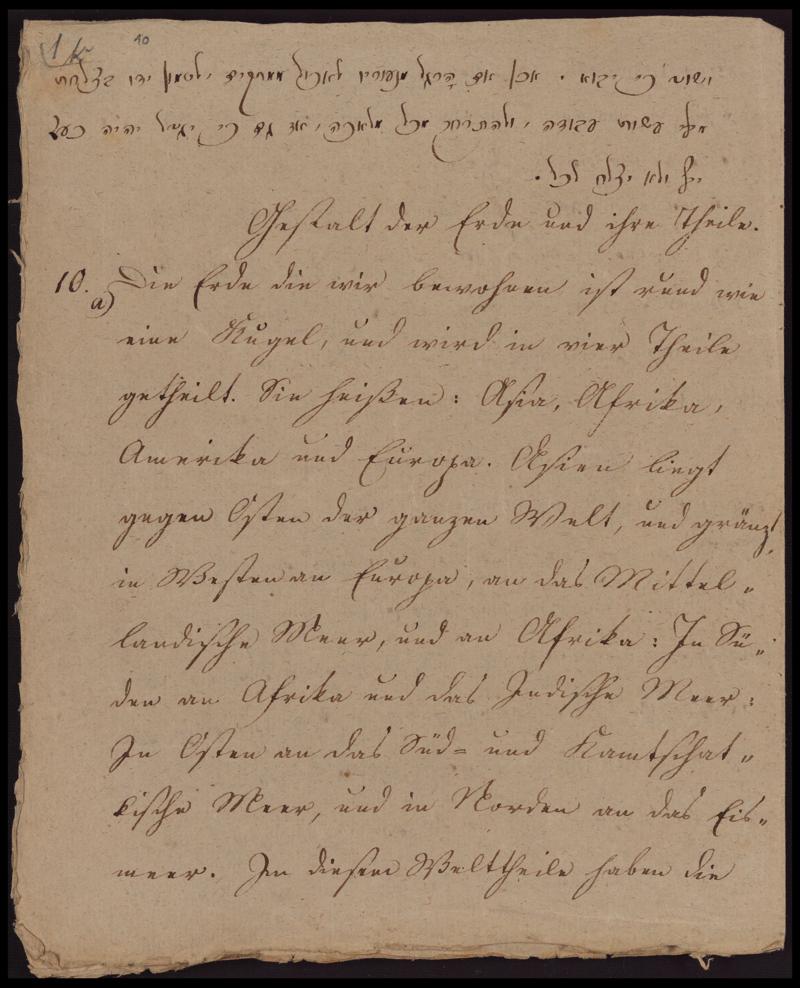 10
ישוב כי יבוא . אכן אם הרגל מנעוריו לאכול ממתקים ילטמון ידו בצלחת
ולא יצלח לכל.
Gestalt der Erde und ihre Theile.
10. a) Die Erde die wir bewohnen ist rund wie
eine Kugel, und wird in vier Theile
getheilt. Sie heißen: Asia, Afrika,
Amerika und Europa. Asien liegt
gegen Osten der ganzen Welt, und gränzt
in Westen an Europa, an das Mittel„
landische Meer, und an Afrika: In Sü„
den an Afrika und das Indische Meer:
In Osten an das Süd= und Kamtschat„
kische Meer, und in Norden an das Eis„
meer. In diesem Welttheile haben die